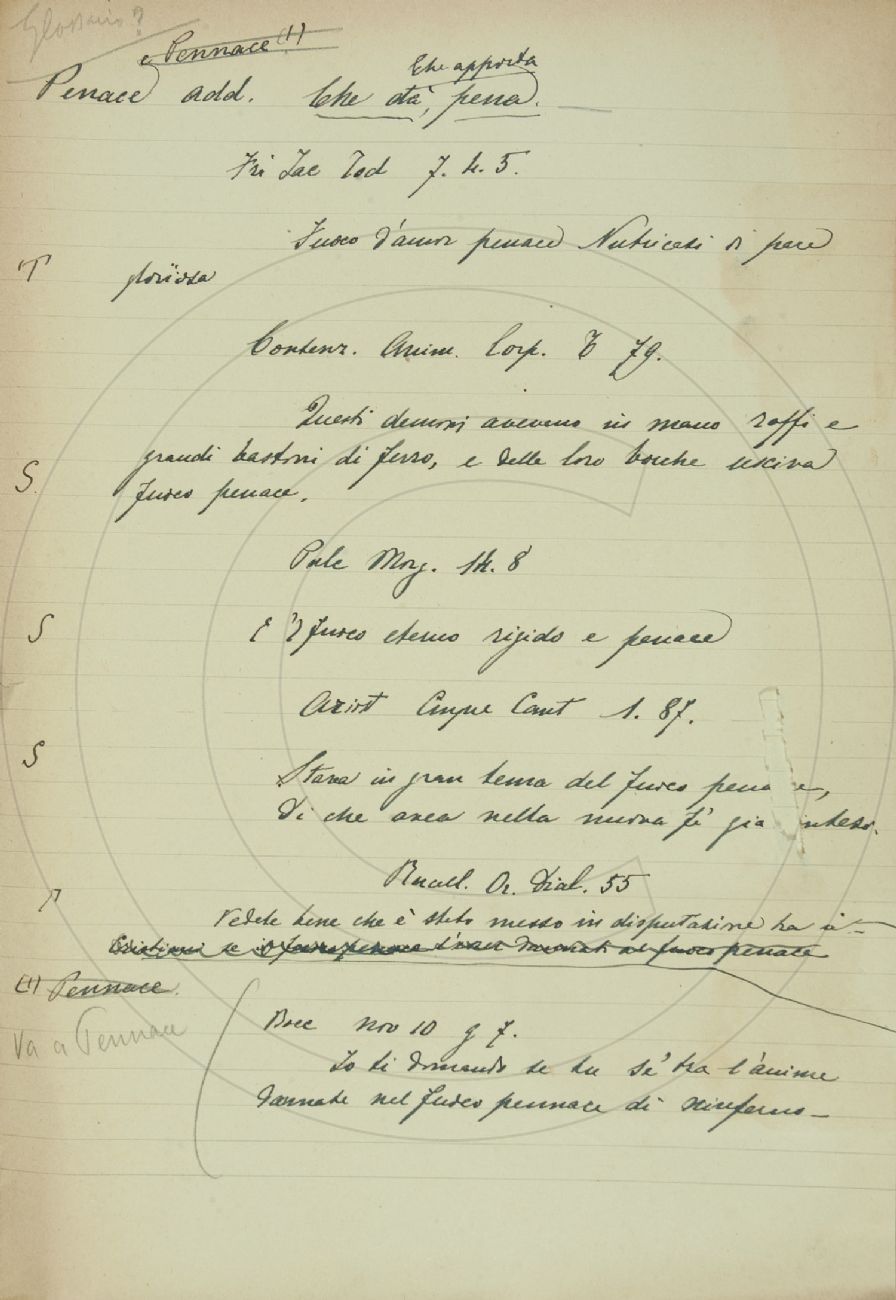 Glossario?
e Pennace (1)
Che apporta
Penace add. Che dà, pena.
Fri Jac Tod 7. 4. 5.
Fuoco d'amor penace Nutricasi di pace
T glorïosa
Contenz. Anim. Corp. 79.
Questi demoni aveveno in mano raffi e
grandi bastoni di ferro, e delle loro bocche usciva
S. fuoco penace.
Pulc Morg. 14. 8
S E 'l fuoco eterno rigido e penace
Ariost Cinque Cant 1. 87.
S Stava in gran tema del fuoco pena e,
Di che avea nella nuova fè già inteso.
Rucell. Or. Dial. 55
Vedete bene che è stato messo in disputazione tra i
Cristiani se il dannati al fuoco penace
(1) Pennace.
Va a Pennace
Bocc nov 10 g 7.
Io ti domando se tu se' tra l'anime
dannate nel fuoco pennace di ninferno